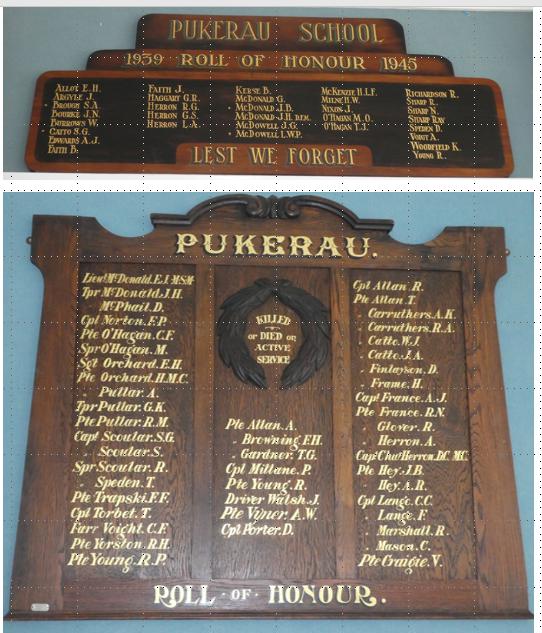 PUKERAU SCHOOL
1939 ROLL OF HONOUR 1945
ALLOT E.H.
ARGYLE J.
• BROUGH S.A.
BOURKE J.N.
BURROWN W.
• GATTO S.G.
EDWARDS A.J.
FAITH B.
FAITH J.
HAGGART G.R.
HERRON R.G.
HERRON G.S.
HERRON L.A.
KERSE B.
• McDONALD G.
• McDONALD J.B.
McDONALD J.H. DEM.
McDOWELL J.G.
• McDOWELL I.W.P.
McKENZIE H.L.F.
MILNE H.W.
NIXON J.
O'HAGAN M.O.
O'HAGAN T.J.
RICHARDSON R.
SHARP R.
SHARP N.
SHARP RAY
SPEDEN D.
VOIGT A.
WOODFIELD K.
YOUNG R.
LEST WE FORGET
PUKERAU.
Lieut McDonald.E.J. M.S.M.
Tpr McDonald.J.H.
" McPhail.D.
Cpl Norton.F.P.
Pte O'Hagan.C.F.
Spr O'Hagan.M.
Sgt Orchard.E.H.
Pte Orchard.H.M.C.
" Pullar.A.
Tpr Pullar.G.K.
Pte Pullar.R.M.
Capt Scoular.S.G.
" Scoular.S.
Spr Scoular.R.
" Speden.T.
Pte Trapski.F.F.
Cpl Torbet.T.
Farr Voight.C.F.
Pte Yorston.R.H.
Pte Young.R.P.
KILLED
or DIED on
ACTIVE
SERVICE
Pte Allan.A.
" Browning.F.H.
" Gardner.T.G.
Cpl Millane.P.
Pte Young.R.
Driver Walsh.J.
Pte Viner.A.W.
Cpl Porter.D.
Cpl Allan.R.
Pte Allan.T.
" Carruthers.A.K.
" Carruthers.R.A.
" Catto.W.J.
" Catto.J.A.
" Finlayson.D.
" Frame.H.
Capt France.A.J.
Pte France.R.N.
" Glover.R.
" Herron.A.
Capt Chas Herron.D.C. M.C.
Pte Hey.J.B.
" Hey.A.R.
Cpl Lange.C.C.
" Lange.F.
" Marshall.R.
" Mason.C.
Pte Craigie.V.
ROLL · OF · HONOUR.